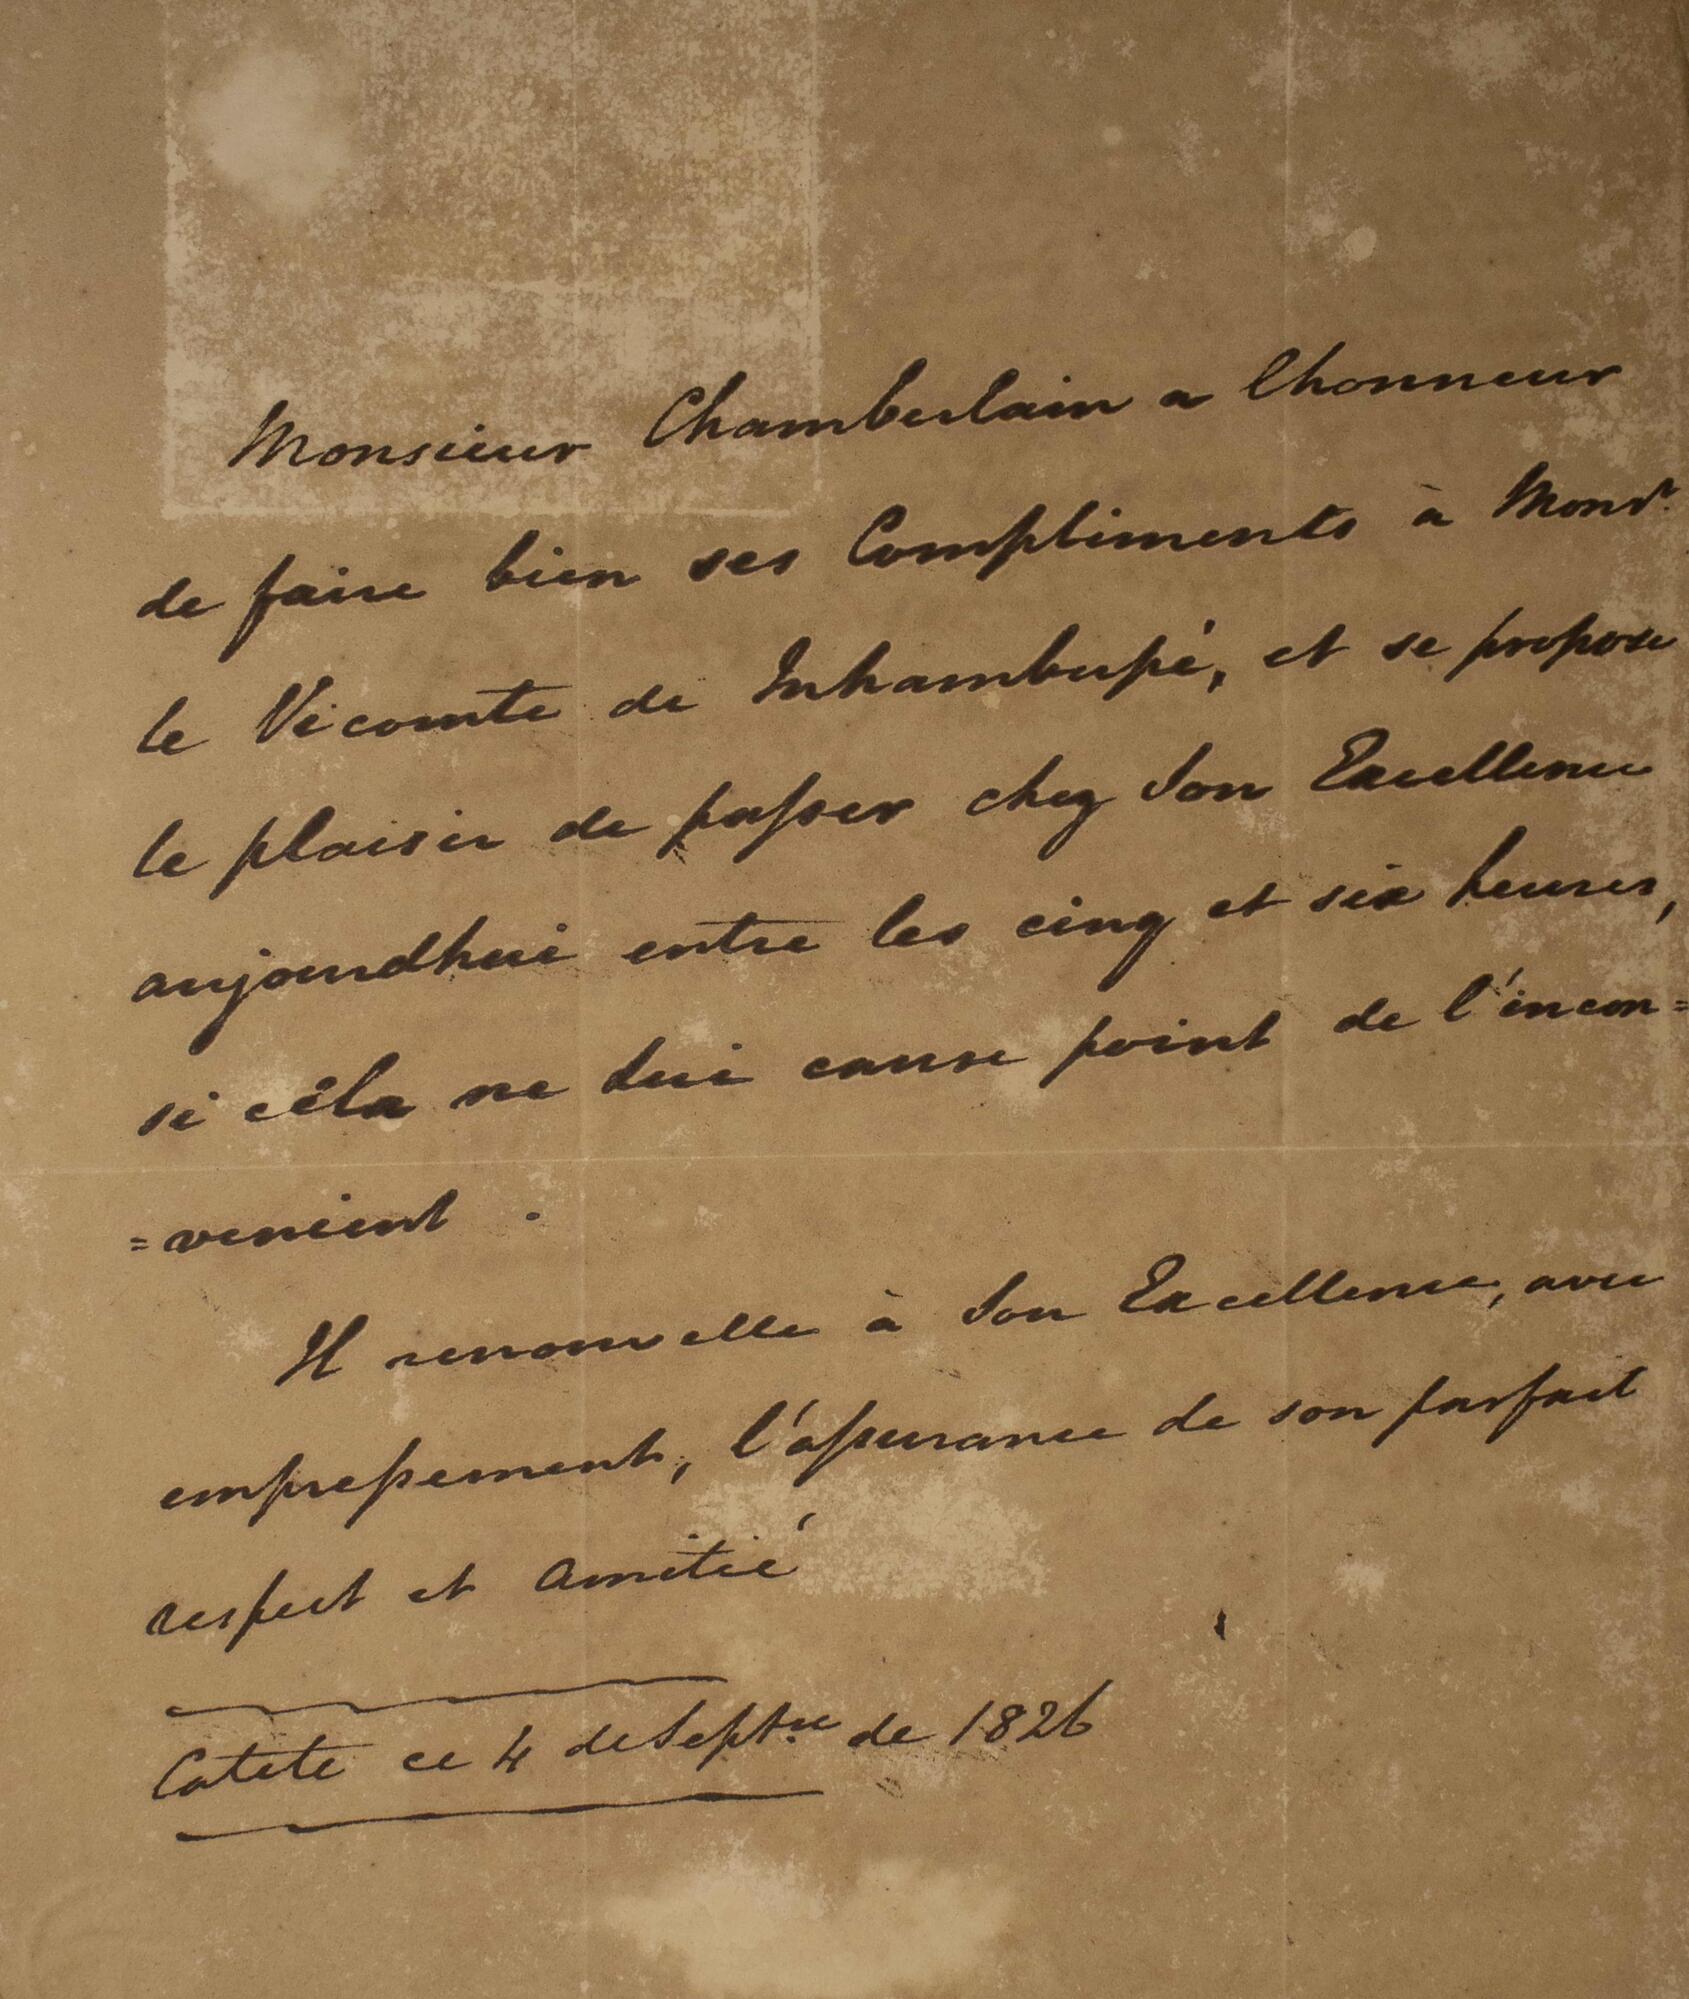 Monsieur Chamberlain a lhonneur
de faire bien ses Compliments à Monsr.
le Vicomte de Inhambupé, et se propose
le plaisir de passer chez Son Excellence
aujourdhui entre les cinq et six heures,
si céla ne lui cause point de l'incon=
=venient.
Il renouvelle à Son Excellence, avec
empressement, l'assurance de son parfait
respect et amitié
Catete ce 4 de Septre de 1826